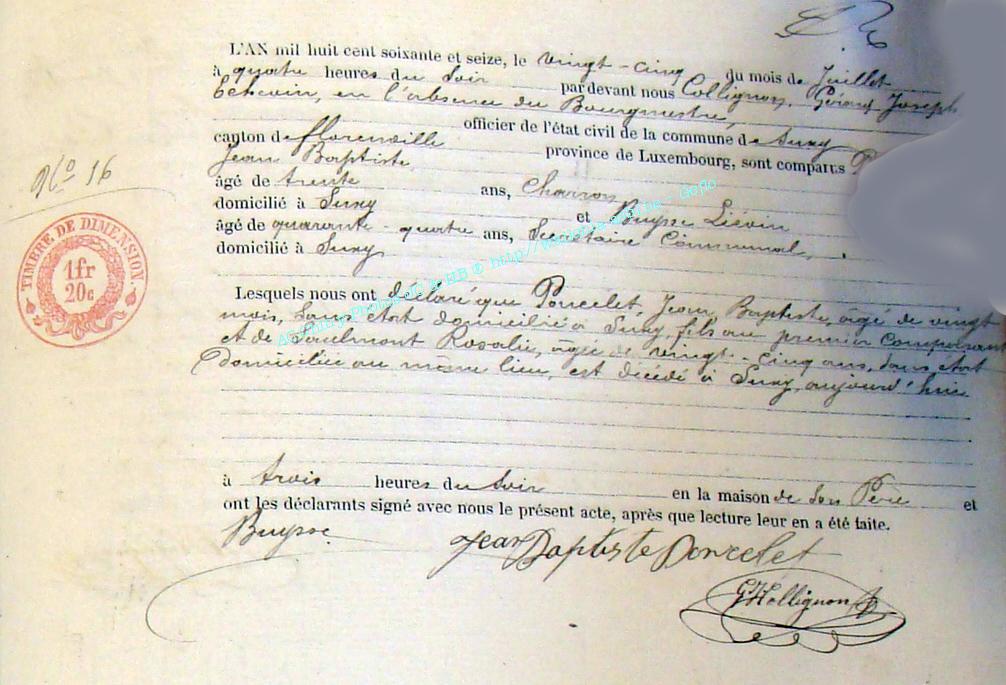 L'AN mil huit cent soixante et seize, le vingt-cinq du mois de Juillet
à quatre heures du Soir par devant nous Collignon, Gérard Joseph
Echevin, en l'absence du Bourgmestre,
officier de l'état civil de la commune de Suxy
canton de florenville province de Luxembourg, sont comparus
Jean Baptiste,
âgé de trente ans, Charron
domicilié à Suxy et Buysse Liévin
âgé de quarante-quatre ans, Secrétaire Communal,
domicilié à Suxy
No 16
TIMBRE DE DIMENSION.
1fr
20c
Lesquels nous ont déclaré que Poncelet, Jean Baptiste, âgé de vingt
mois, sans état domicilié à Suxy, fils du premier comparant
et de Saulmont Rosalie, âgée de vingt-cinq ans, sans état
domiciliée au même lieu, est décédé à Suxy aujourd'hui
à trois heures du Soir en la maison de son Père et
ont les déclarants signé avec nous le présent acte, après que lecture leur en a été faite.
Buysse
Jean Baptiste Poncelet
Collignon